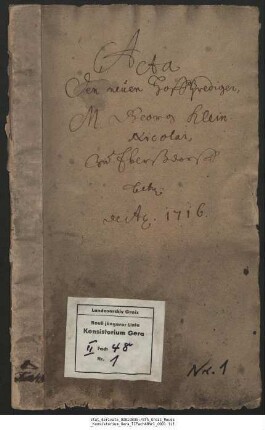 Acta
Den neüen Hoff Prediger,
M Georg Klein
Nicolai,
zu Ebersdorff
betr.
de Aō. 1716.
Landesarchiv Greiz
Reuß jüngerer Linie
Konsistorium Gera
II Fach 48
Nr. 1
Nr. 1